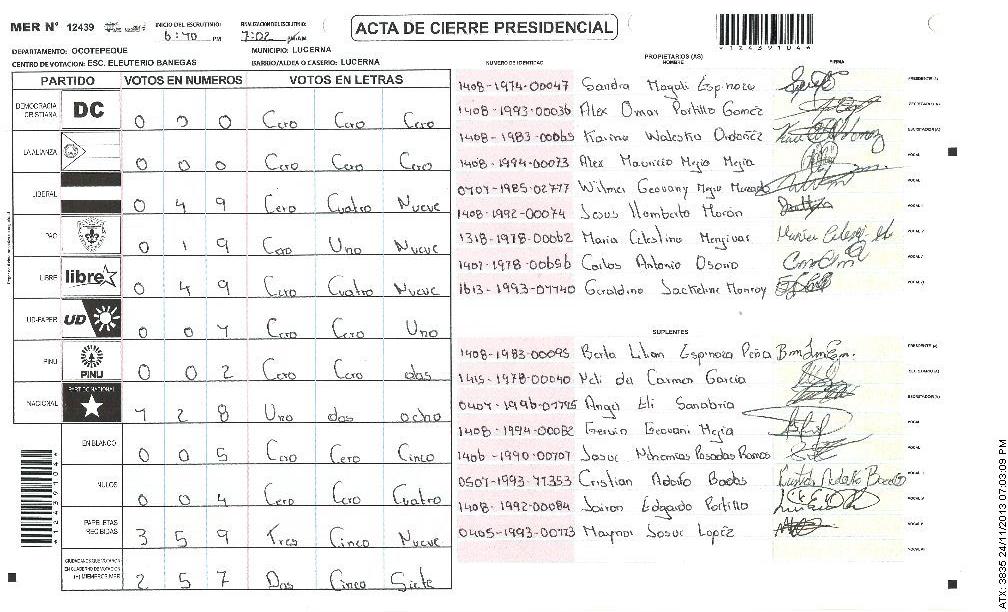 MER N° 12439 INICIO DEL ESCRUTINIO: 6:40 PM 7:02 ACTA DE CIERRE PRESIDENCIAL
DEPARTAMENTO: OCOTEPEQUE MUNICIPIO: LUCERNA
CENTRO DE VOTACION: ESC. ELEUTERIO BANEGAS BARRIO/ALDEA O CASERIO: LUCERNA
PARTIDO VOTOS EN NUMEROS VOTOS EN LETRAS
DEMOCRACIA CRISTIANA DC 0 0 0 Cero Cero Cero
LA ALIANZA 0 0 0 Cero Cero Cero
LIBERAL 0 4 9 Cero Cuatro Nueve
PAC 0 1 9 Cero Uno Nueve
LIBRE libre 0 4 9 Cero Cuatro Nueve
UD-FAPER UD 0 0 1 Cero Cero Uno
PINU PINU 0 0 2 Cero Cero dos
NACIONAL PARTIDO NACIONAL 1 2 8 Uno dos ocho
EN BLANCO 0 0 5 Cero Cero Cinco
NULOS 0 0 4 Cero Cero Cuatro
PAPELETAS RECIBIDAS 3 5 9 Tres Cinco Nueve
2 5 7 Dos Cinco Siete
NUMERO DE IDENTIDAD PROPIETARIOS (AS) NOMBRE FIRMA
1408-1974-00047 Sandra Magali Espinoza
1408-1993-00036 Alex Omar Portillo Gomez
1408-1983-00065 Karina Walestia Ordoñez
1408-1994-00073 Alex Mauricio Mejia Mejia
0401-1985-02777 Wilmer Geovany Mejia
1408-1992-00074 Jesus Humberto Morán
1318-1978-00062 Maria Celestina Menjivar
1401-1978-00656 Carlos Antonio Osorio
1613-1993-01140 Geraldina Jackeline Monroy
SUPLENTES
1408-1983-00095 Berta Lilian Espinoza Peña
1415-1978-00040 Neli del Carmen Garcia
0401-1996-01795 Angel Eli Sanabria
1408-1994-00082 Gervin Geovani Mejia
1406-1990-00101 Josue Nehemias Posadas Ramos
0501-1993-11353 Cristian Adolfo
1408-1992-00084 Jairon Edgardo Portillo
0405-1993-00073 Maynor Josue Lopéz
ATX: 3835 24/11/2013 07:03:09 PM